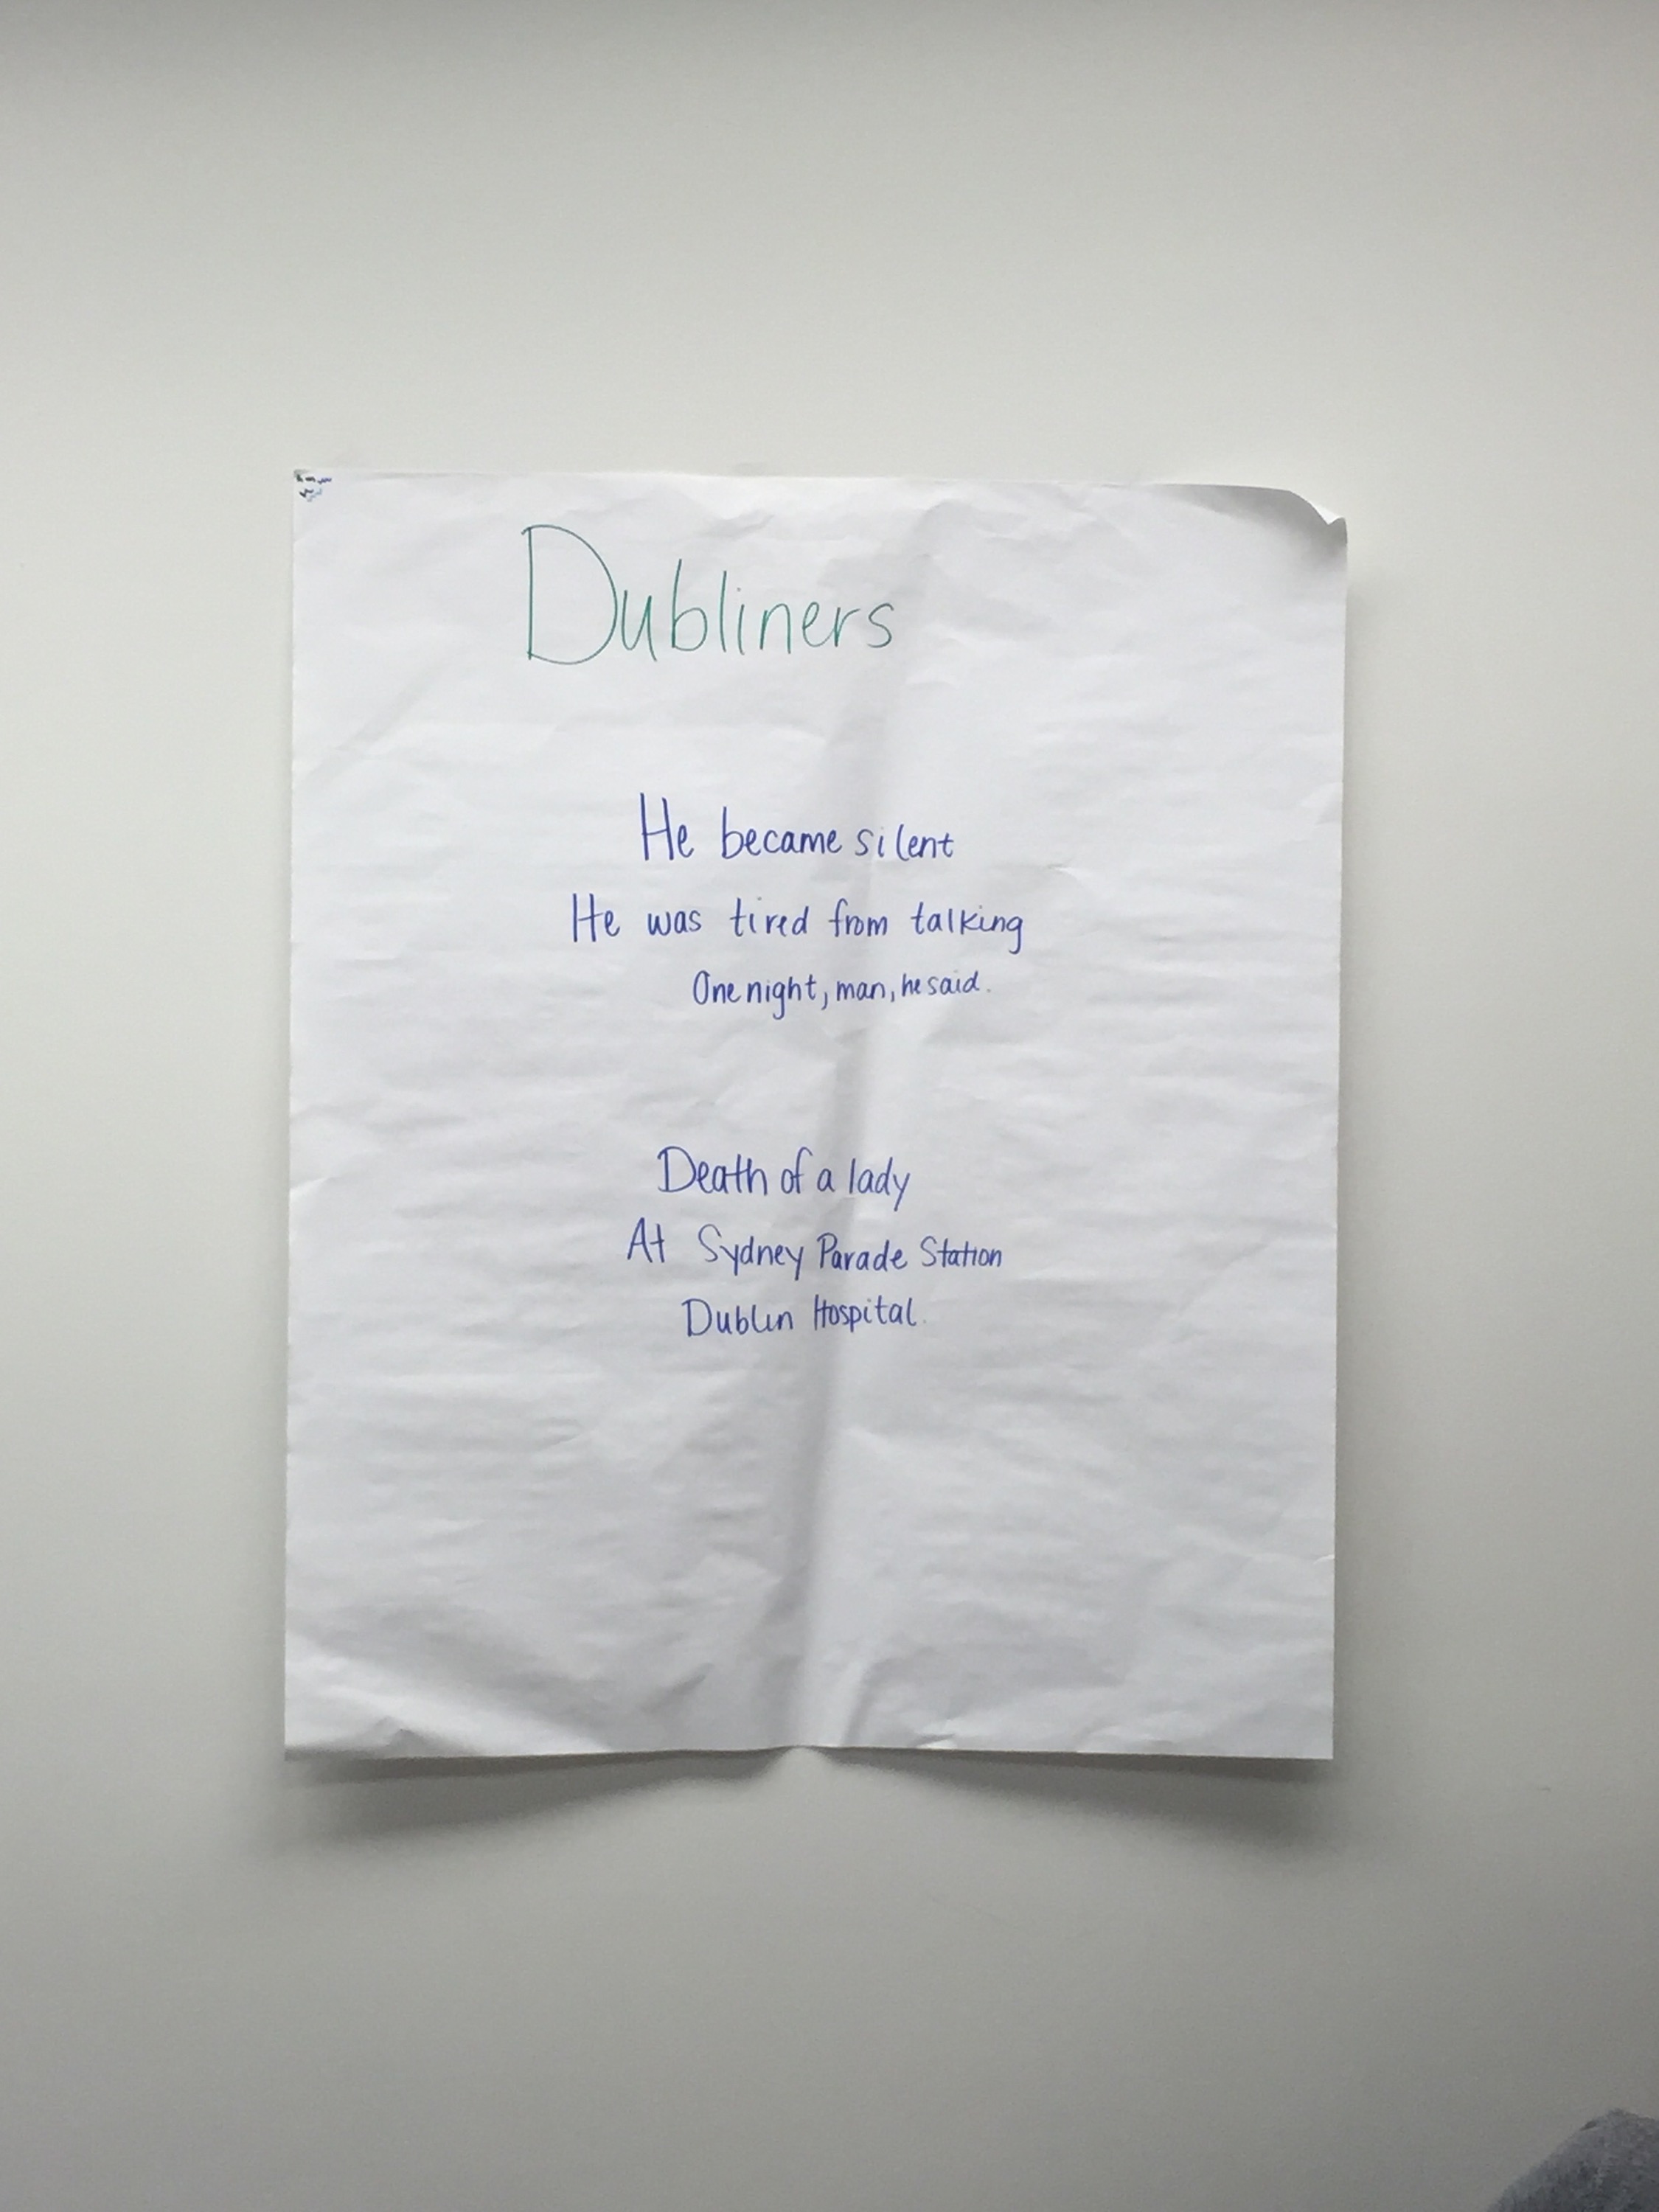 Dubliners
He became silent
He was tired from talking
One night, man, he said.
Death of a lady
At Sydney Parade Station
Dublin Hospital.